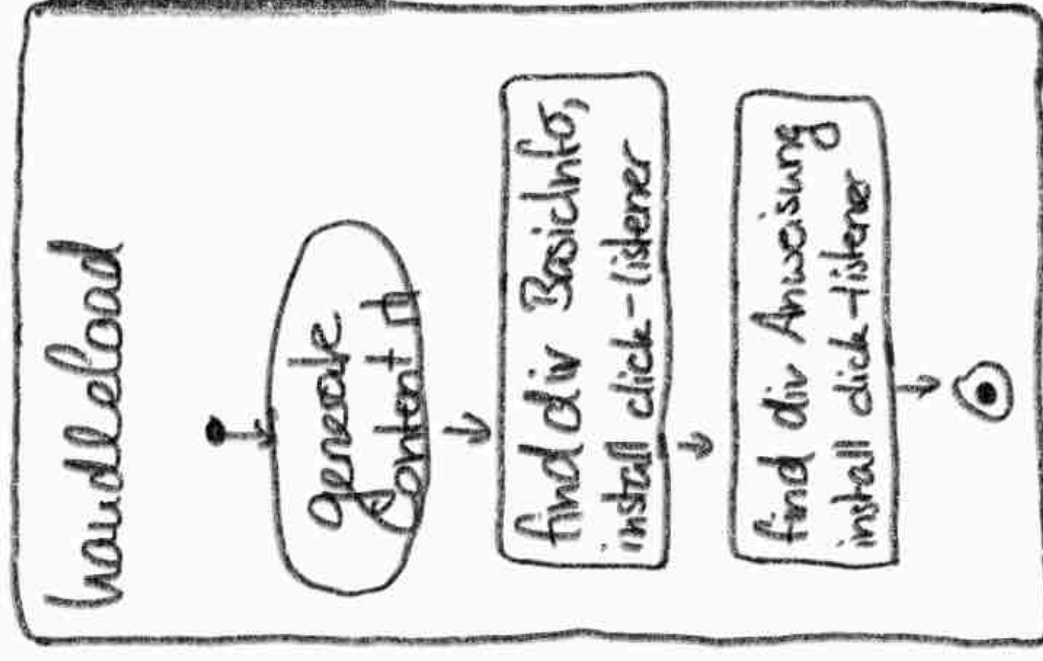 handleLoad
generate
Content
find div BasicInfo,
install click-listener
find div Anweisung
install click-listener